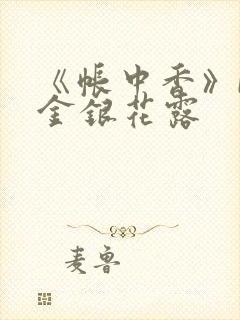 《帐中香》
金银花露
麦鲁